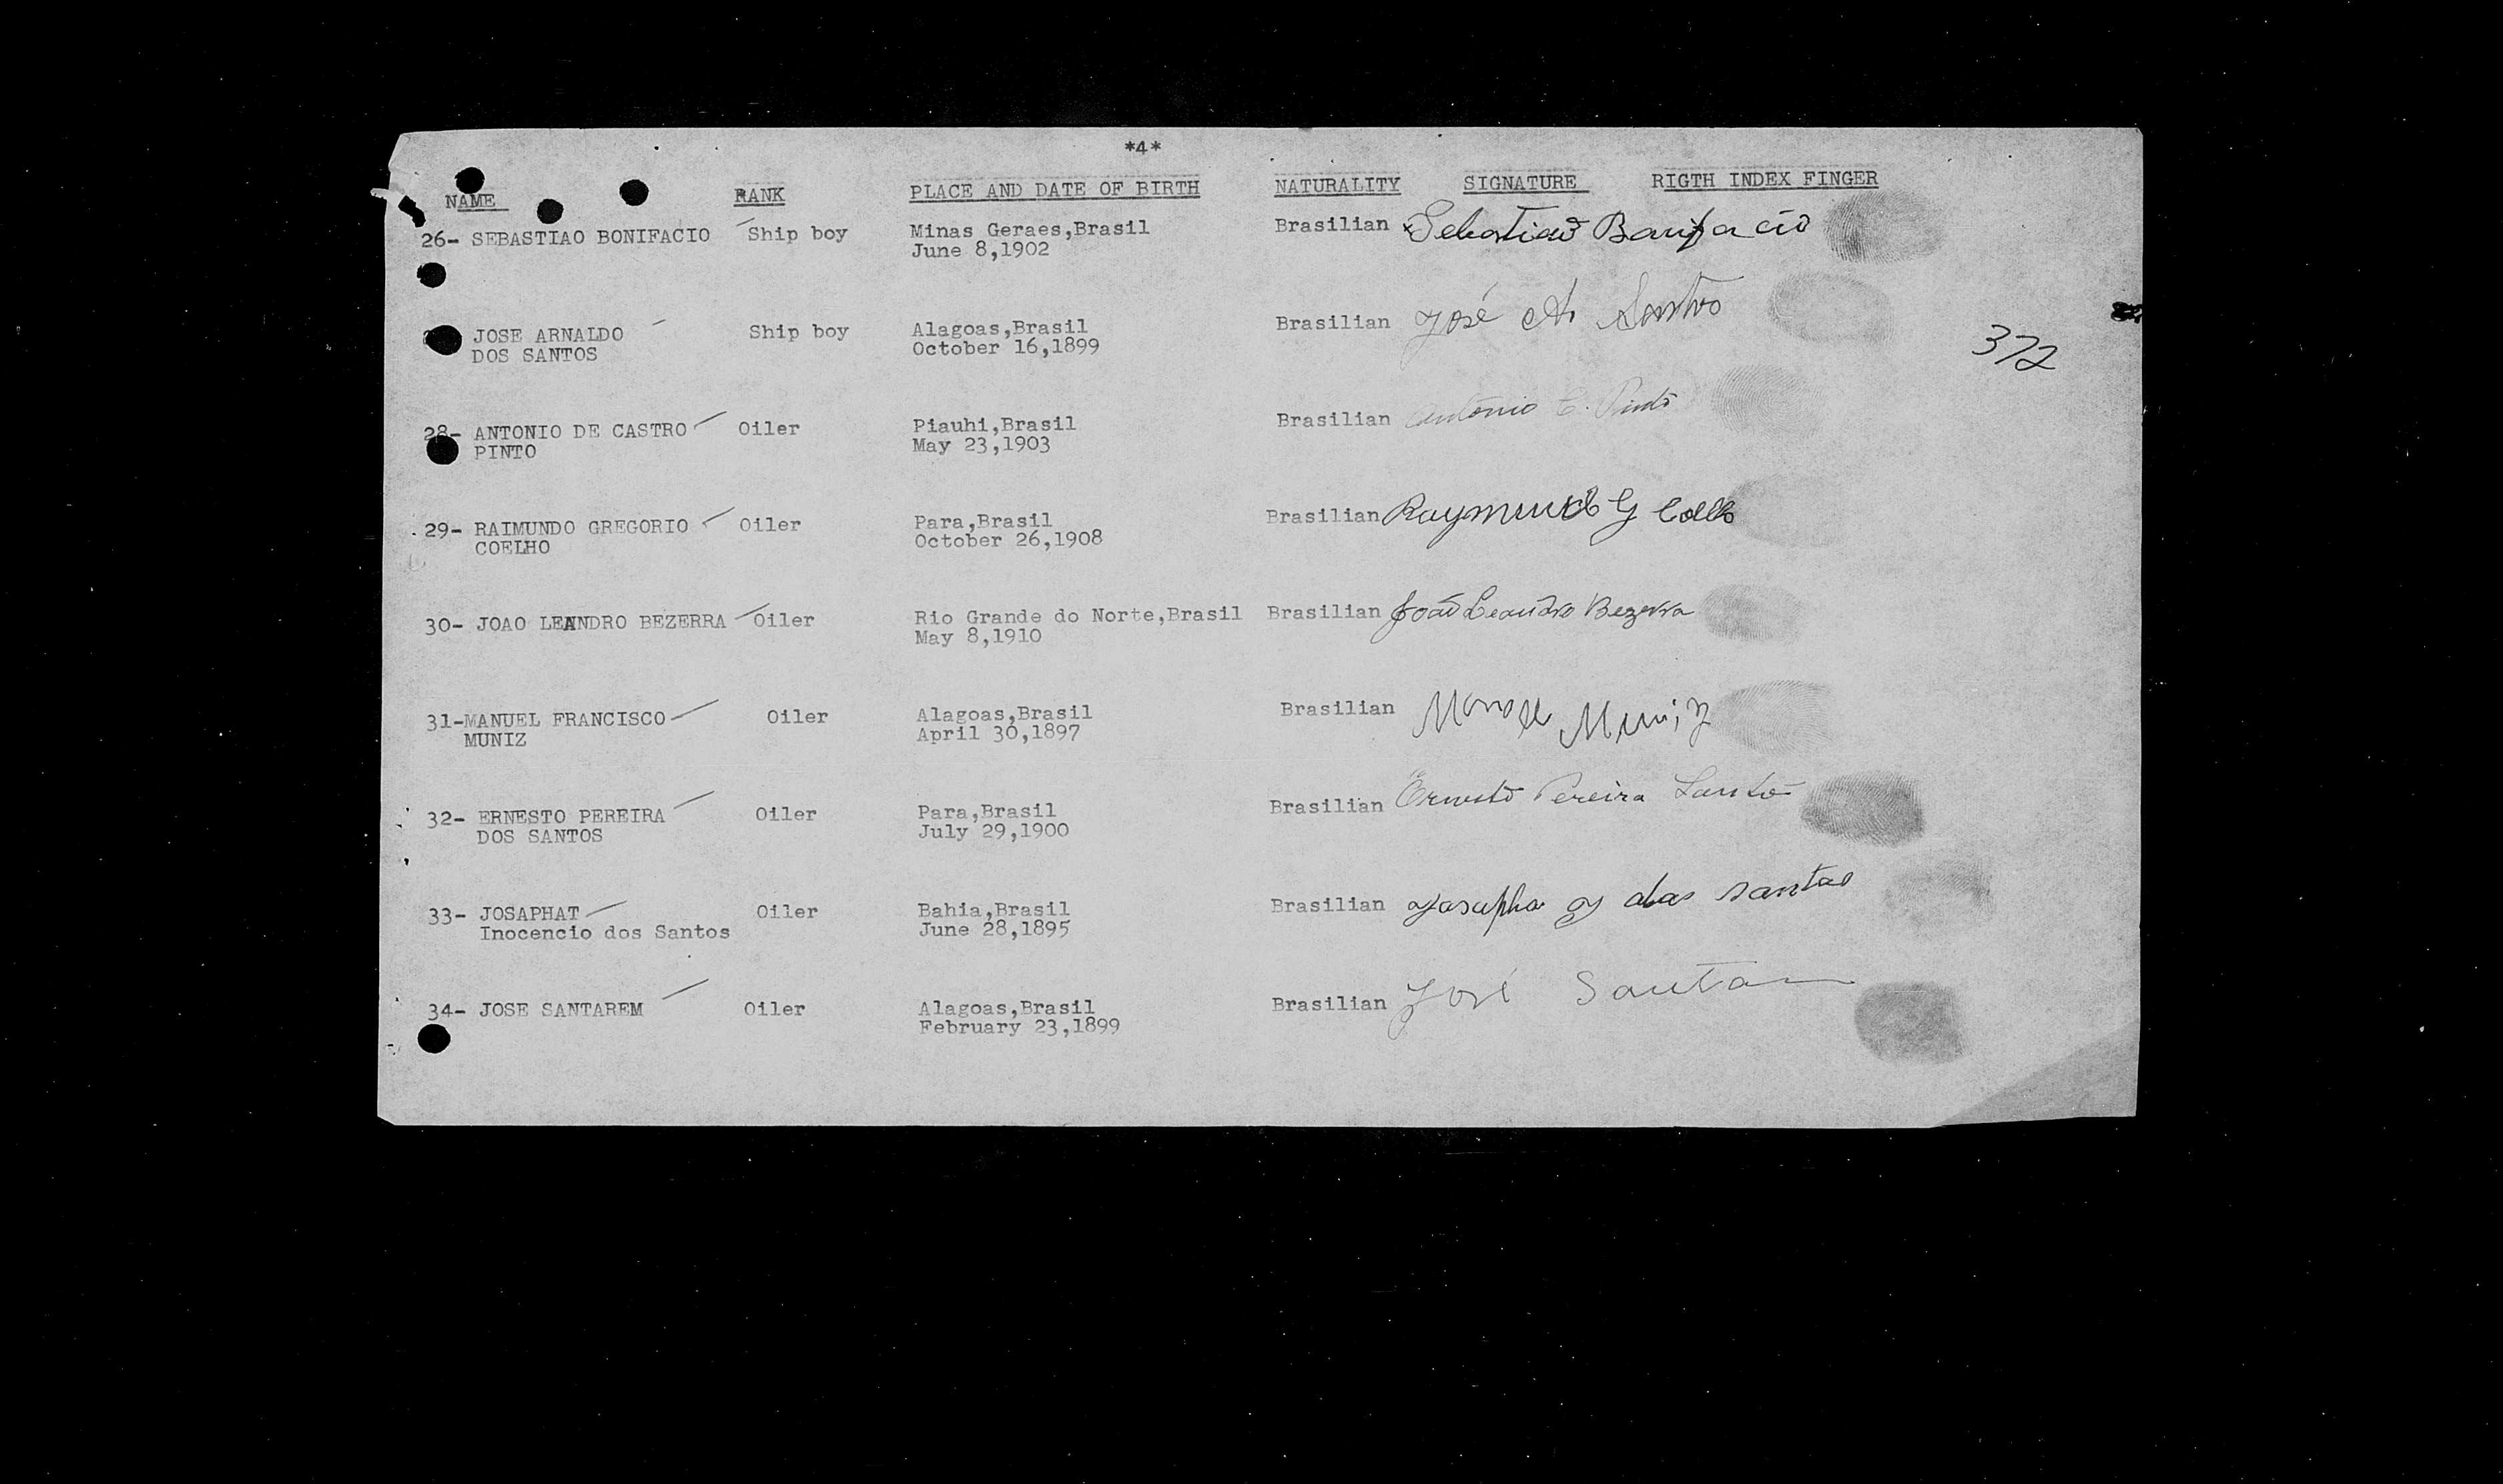 *4*
NAME RANK PLACE AND DATE OF BIRTH NATURALITY SIGNATURE RIGTH INDEX FINGER
26- SEBASTIAO BONIFACIO Ship boy Minas Geraes,Brasil Brasilian Sebastiaõ Bonifacio
June 8,1902
JOSE ARNALDO Ship boy Alagoas,Brasil Brasilian José A. Santos
DOS SANTOS October 16,1899
372
28- ANTONIO DE CASTRO Oiler Piauhi,Brasil Brasilian Antonio C. Pinto
PINTO May 23,1903
29- RAIMUNDO GREGORIO Oiler Para,Brasil Brasilian Raymundo G Coelho
COELHO October 26,1908
30- JOAO LEANDRO BEZERRA Oiler Rio Grande do Norte,Brasil Brasilian João Leandro Bezerra
May 8,1910
31-MANUEL FRANCISCO Oiler Alagoas,Brasil Brasilian Manoel Muniz
MUNIZ April 30,1897
32- ERNESTO PEREIRA Oiler Para,Brasil Brasilian Ernesto Pereira Santos
DOS SANTOS July 29,1900
33- JOSAPHAT Oiler Bahia,Brasil Brasilian dos santos
Inocencio dos Santos June 28,1895
34- JOSE SANTAREM Oiler Alagoas,Brasil Brasilian José
February 23,1899